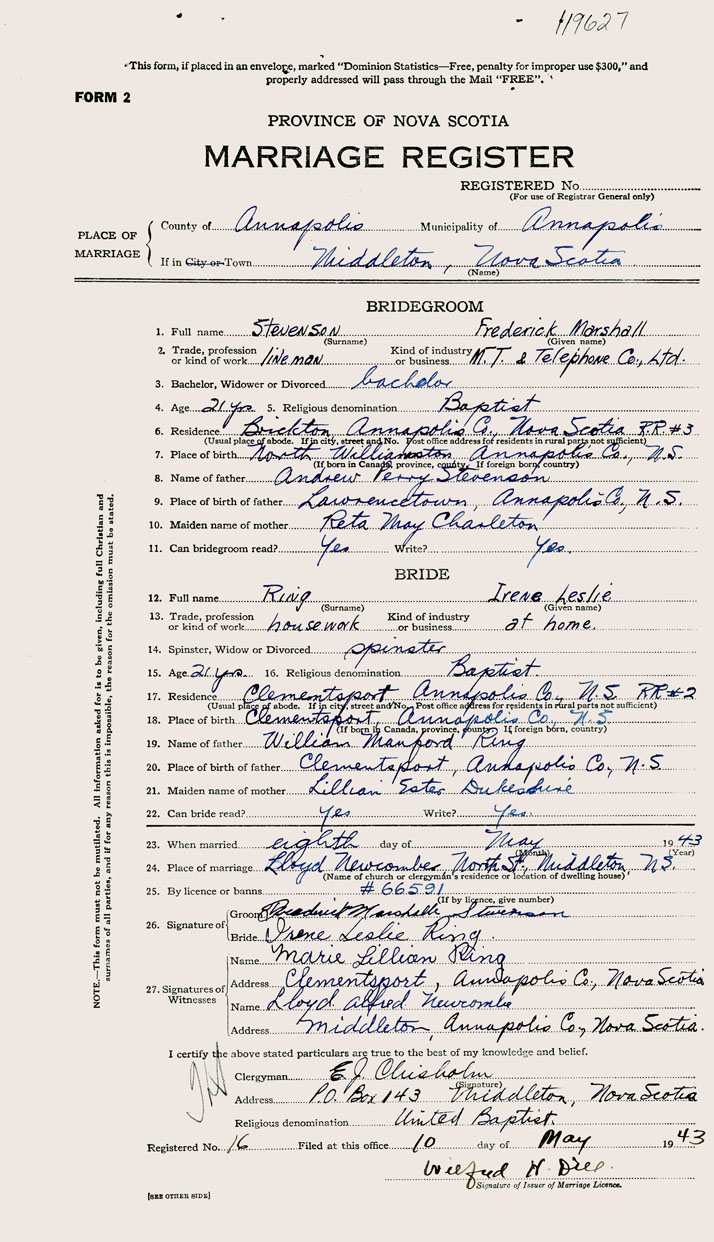 119627
"This form, if placed in an envelope, marked "Dominion Statistics—Free, penalty for improper use $300," and
properly addressed will pass through the Mail "FREE".
FORM 2
PROVINCE OF NOVA SCOTIA
MARRIAGE REGISTER
REGISTERED No.
(For use of Registrar General only)
PLACE OF MARRIAGE
County of Annapolis Municipality of Annapolis
If in City or Town Middleton, Nova Scotia
(Name)
BRIDEGROOM
1. Full name Stevenson Frederick Marshall
(Surname) (Given name)
2. Trade, profession or kind of work lineman Kind of industry or business M.T. & Telephone Co., Ltd.
3. Bachelor, Widower or Divorced bachelor
4. Age 21 yrs. 5. Religious denomination Baptist
6. Residence Brickton Annapolis Co., Nova Scotia RR #3
(Usual place of abode. If in city, street and No. Post office address for residents in rural parts not sufficient)
7. Place of birth North Williamston Annapolis Co., N.S.
(If born in Canada, province, county. If foreign born, country)
8. Name of father Andrew Perry Stevenson
9. Place of birth of father Lawrencetown, Annapolis Co., N.S.
10. Maiden name of mother Reta May Charleton
11. Can bridegroom read? Yes Write? Yes.
BRIDE
12. Full name Ring Irene Leslie
(Surname) (Given name)
13. Trade, profession or kind of work housework Kind of industry or business at home.
14. Spinster, Widow or Divorced spinster
15. Age 21 yrs. 16. Religious denomination Baptist
17. Residence Clementsport Annapolis Co., N.S. RR #2
(Usual place of abode. If in city, street and No. Post office address for residents in rural parts not sufficient)
18. Place of birth Clementsport, Annapolis Co., N.S.
(If born in Canada, province, county. If foreign born, country)
19. Name of father William Manford Ring
20. Place of birth of father Clementsport, Annapolis Co., N.S
21. Maiden name of mother Lillian Ester Dukeshire
22. Can bride read? Yes Write? Yes.
23. When married eighth day of May 1943
(Month) (Year)
24. Place of marriage Lloyd Newcombes North St., Middleton, N.S.
(Name of church or clergyman's residence or location of dwelling house)
25. By licence or banns #66591
(If by licence, give number)
26. Signature of
Groom Frederick Marshall Stevenson
Bride Irene Leslie Ring.
27. Signatures of Witnesses
Name Marie Lillian Ring
Address Clementsport, Annapolis Co., Nova Scotia
Name Lloyd Alfred Newcombe
Address Middleton, Annapolis Co., Nova Scotia.
I certify the above stated particulars are true to the best of my knowledge and belief.
Clergyman E.J. Chisholm
(Signature)
Address P.O. Box 143 Middleton, Nova Scotia
Religious denomination United Baptist.
Registered No. 16 Filed at this office 10 day of May 1943
Wilfred H. Dill
Signature of Issuer of Marriage Licence.
[SEE OTHER SIDE]
NOTE.—This form must not be mutilated. All information asked for is to be given, including full Christian and
surnames of all parties, and if for any reason this is impossible, the reason for the omission must be stated.